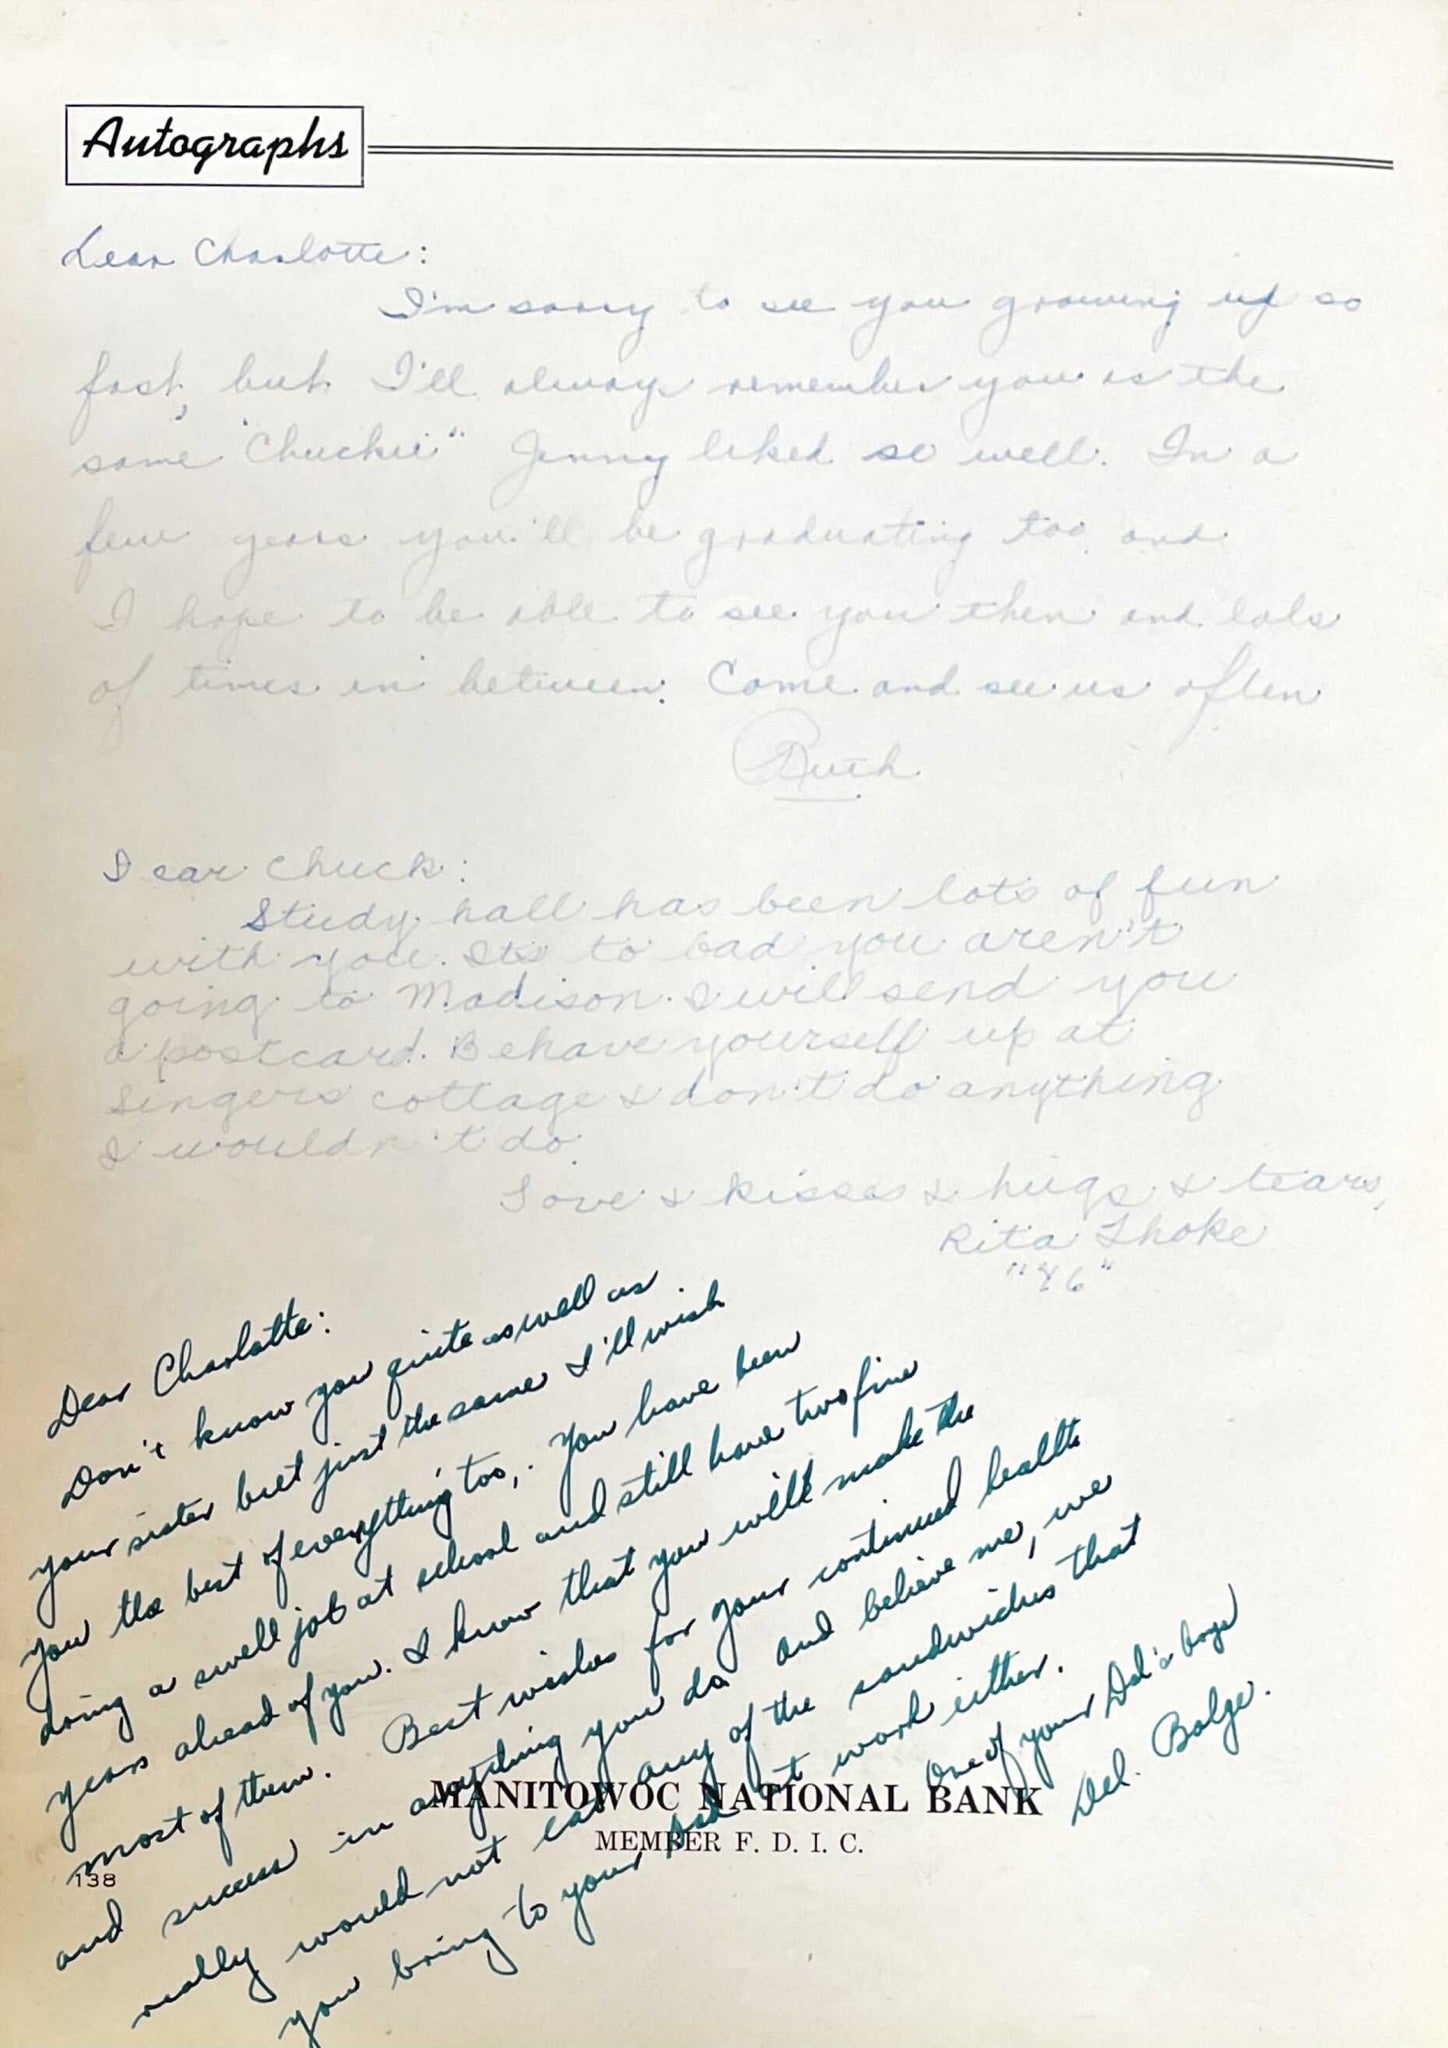 Autographs
Dear Charlotte:
I'm sorry to see you growing up so
fast, but I'll always remember you as the
same "Chuckie" Jenny liked so well. In a
few years you'll be graduating too and
I hope to be able to see you then and lots
of times in between. Come and see us often
Ruth
Dear Chuck:
Study hall has been lots of fun
with you. Its to bad you aren't
going to Madison. I will send you
a postcard. Behave yourself up at
Singers cottage & don't do anything
I wouldn't do.
Love & kisses & hugs & tears,
Rita Thoke
"46"
Dear Charlotte:
Don't know you quite as well as
your sister but just the same I'll wish
you the best of everything too,. You have been
doing a swell job at school and still have two fine
years ahead of you. I know that you will make the
most of them. Best wishes for your continued health
and success in anything you do and believe me, we
really would not eat any of the sandwiches that
you bring to your Dad at work either.
One of your Dad's boys
Del. Bolge.
MANITOWOC NATIONAL BANK
MEMBER F. D. I. C.
138